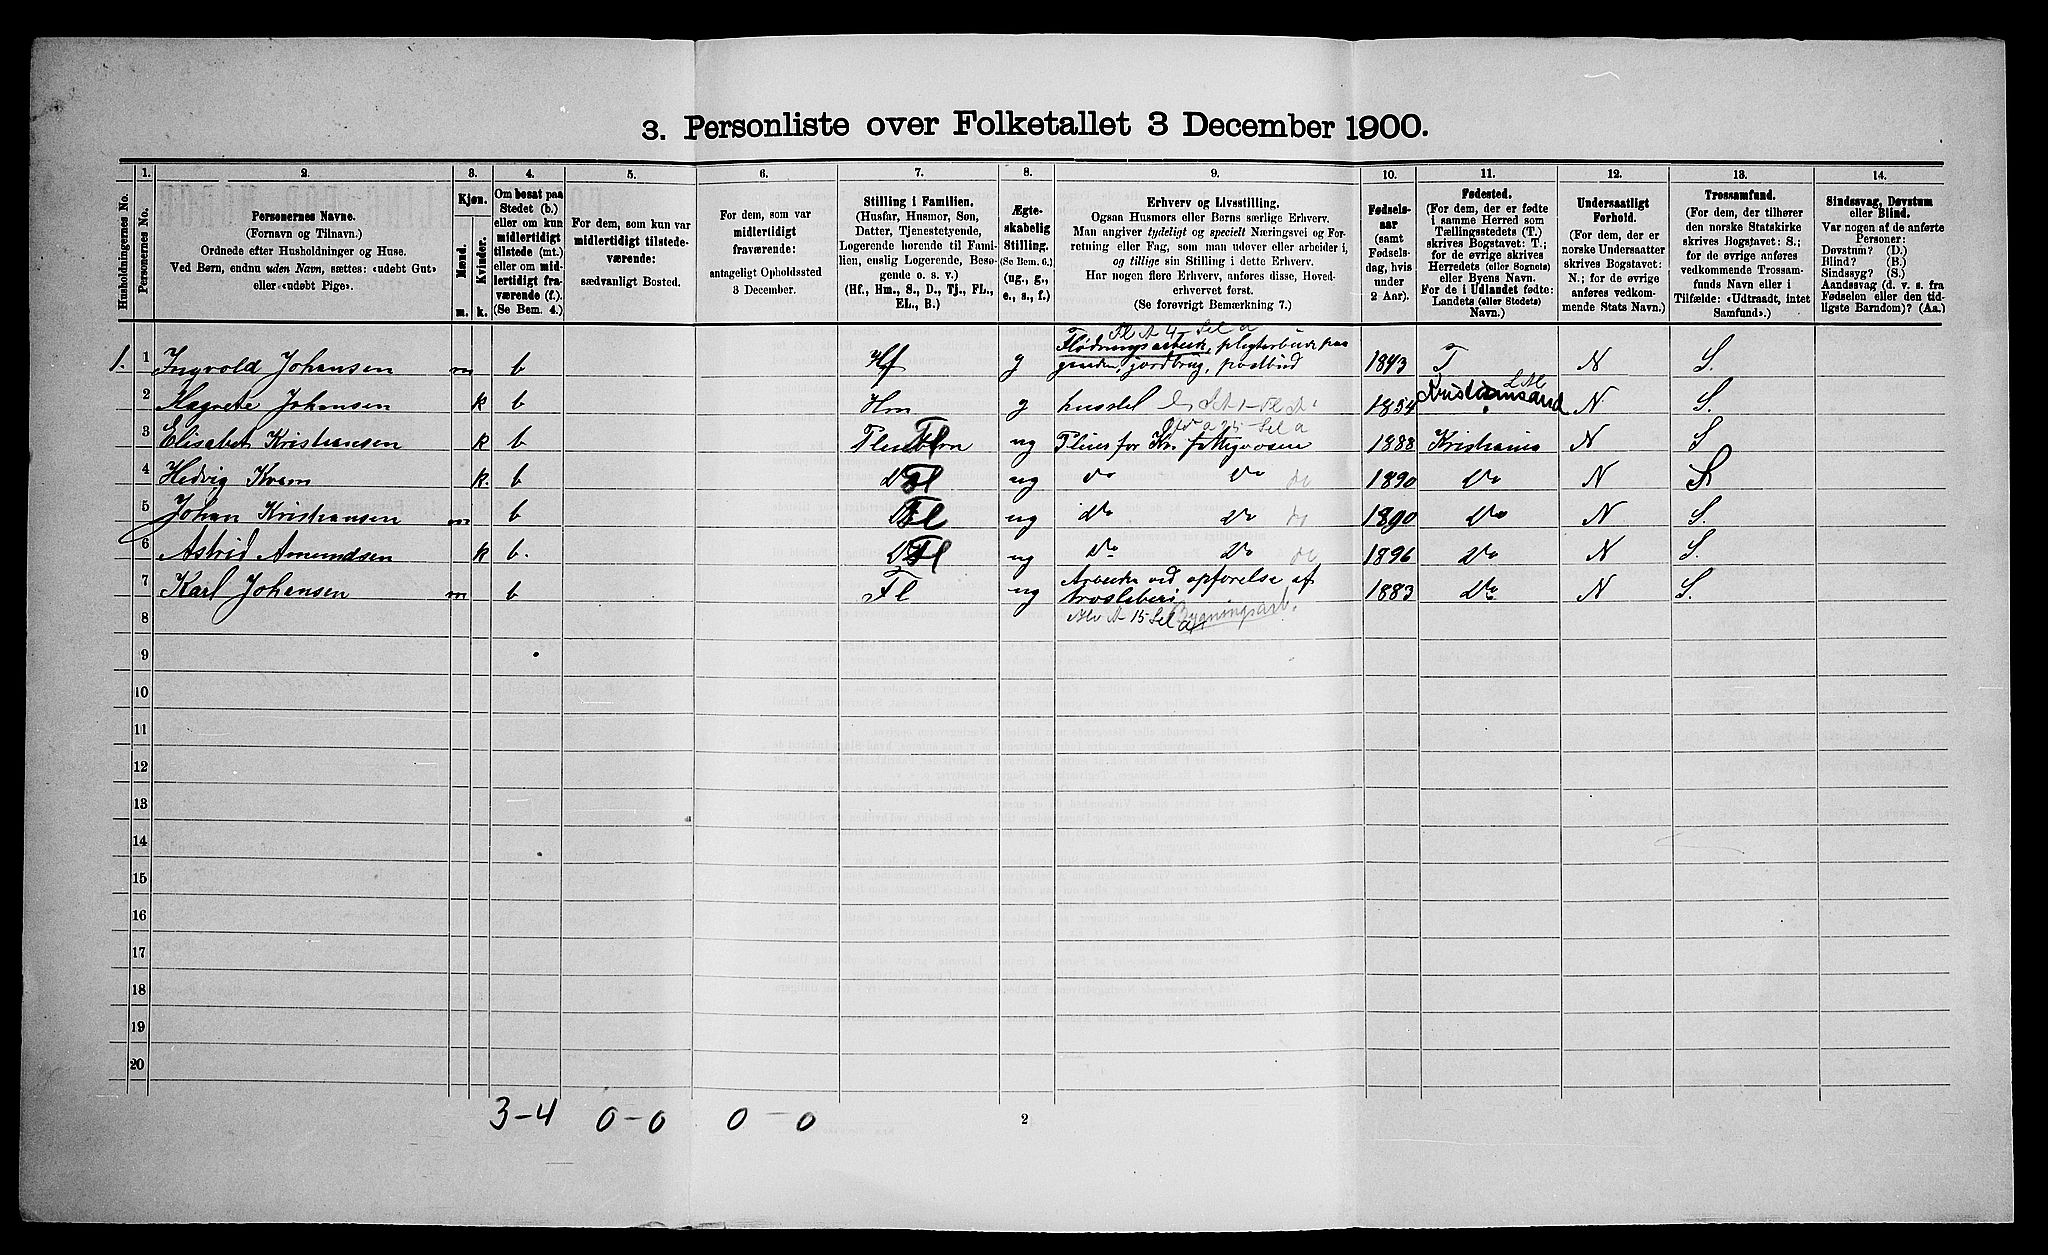 3. Personliste over Folketallet 3 December 1900.
Husholdningernes No.
1.
Personernes No.
2.
Personernes Navne.
(Fornavn og Tilnavn.)
Ordnede efter Husholdninger og Huse.
Ved Børn, endnu uden Navn, sættes: «udøbt Gut»
eller «udøbt Pige».
3.
Kjøn.
Mænd.
Kvinder.
m. k.
4.
Om bosat paa
Stedet (b.)
eller om kun
midlertidigt
tilstede (mt.)
eller om mid-
lertidigt fra-
værende (f.).
(Se Bem. 4.)
5.
For dem, som kun var
midlertidigt tilstede-
værende:
sædvanligt Bosted.
6.
For dem, som var
midlertidigt
fraværende:
antageligt Opholdssted
3 December.
7.
Stilling i Familien.
(Husfar, Husmor, Søn,
Datter, Tjenestetyende,
Logerende hørende til Fami-
lien, enslig Logerende, Besø-
gende o. s. v.)
(Hf., Hm., S., D., Tj., FL.,
EL., B.)
8.
Ægte-
skabelig
Stilling.
(Se Bem. 6.)
(ug., g.,
e., s., f.)
9.
Erhverv og Livsstilling.
Ogsaa Husmors eller Børns særlige Erhverv.
Man angiver tydeligt og specielt Næringsvei og For-
retning eller Fag, som man udøver eller arbeider i,
og tillige sin Stilling i dette Erhverv.
Har nogen flere Erhverv, anføres disse, Hoved-
erhvervet først.
(Se forøvrigt Bemærkning 7.)
10.
Fødsels-
aar
(samt
Fødsels-
dag, hvis
under
2 Aar).
11.
Fødested.
(For dem, der er fødte
i samme Herred som
Tællingsstedets (T.)
skrives Bogstavet: T;
for de øvrige skrives
Herredets (eller Sognets)
eller Byens Navn.
For de i Udlandet fødte:
Landets (eller Stedets)
Navn.)
12.
Undersaatligt
Forhold.
(For dem, der er
norske Undersaatter
skrives Bogstavet:
N.; for de øvrige
anføres vedkom-
mende Stats Navn.)
13.
Trossamfund.
(For dem, der tilhører
den norske Statskirke
skrives Bogstav: S.;
for de øvrige anføres
vedkommende Trossam-
funds Navn eller i
Tilfælde: «Udtraadt, intet
Samfund».)
14.
Sindssvag, Døvstum
eller Blind.
Var nogen af de anførte
Personer:
Døvstum? (D.)
Blind? (B.)
Sindssyg? (S.)
Aandssvag (d. v. s. fra
Fødselen eller den tid-
ligste Barndom)? (Aa.)
1. 1 Ingvold Johansen m b Hf g Flødningsarbeid, 1843 T N S.
jordbrug,
2 Johansen k b Hm g husstel 1854 Kristiansand N S.
3 Elisabet Kristiansen k b Fl ug Pleies for Kr. fattigvæsen 1888 Kristiania N S
4 Hedvig k. b Fl ug do Do do 1890 Do N S
5 Johan Kristiansen m b Fl ug do Do do 1890 Do N S.
6 Astrid Amundsen k b. Fl ug Do Do do 1896 Do N S.
7 Karl Johansen m b Fl ug Arbeider ved opførelse af 1883 Do N S.
8 Bygningsarb.
9
10
11
12
13
14
15
16
17
18
19
20
3-4 0-0 0-0
2